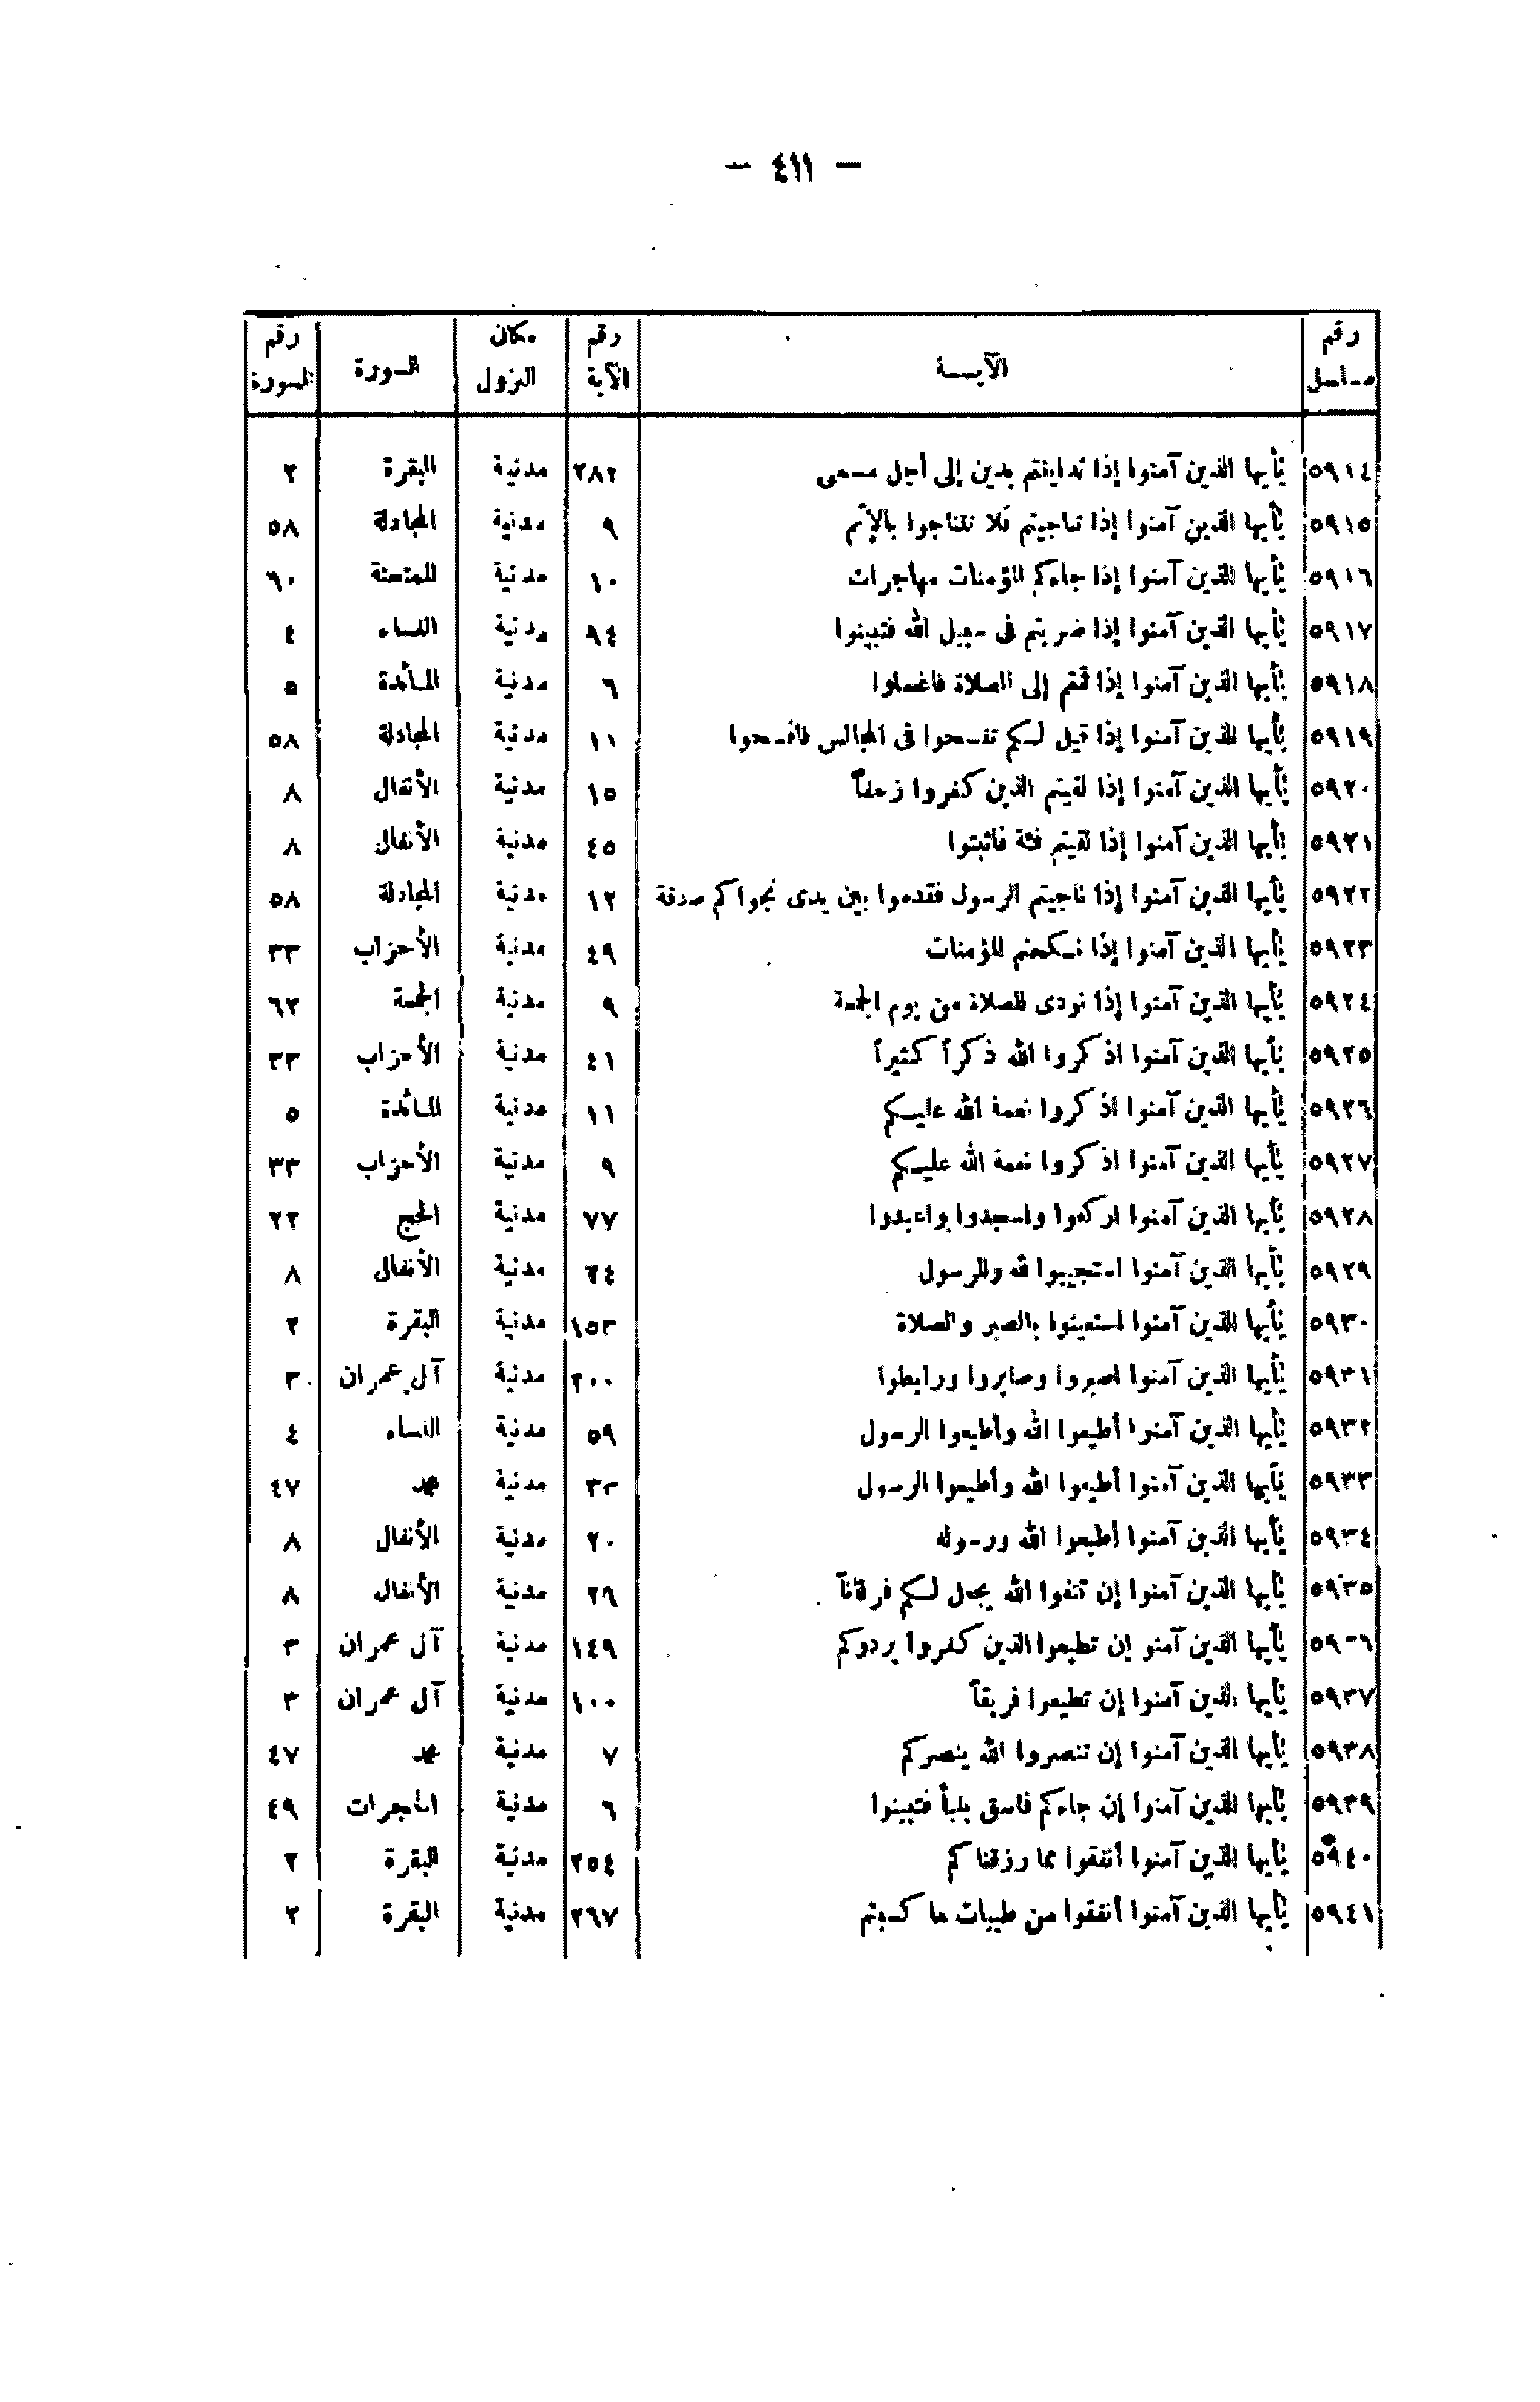 — ٤١١ —
رقم مسلسل | الآيــة | رقم الآية | مكان النزول | السورة | رقم السورة
٥٩١٤ | يٰأيها الذين آمنوا إذا تداينتم بدين إلى أجل مسمى | ٢٨٢ | مدنية | البقرة | ٢
٥٩١٥ | يٰأيها الذين آمنوا إذا تناجيتم فلا تتناجوا بالإثم | ٩ | مدنية | المجادلة | ٥٨
٥٩١٦ | يٰأيها الذين آمنوا إذا جاءكم المؤمنات مهاجرات | ١٠ | مدنية | الممتحنة | ٦٠
٥٩١٧ | يٰأيها الذين آمنوا إذا ضربتم فى سبيل الله فتبينوا | ٩٤ | مدنية | النساء | ٤
٥٩١٨ | يٰأيها الذين آمنوا إذا قمتم إلى الصلاة فاغسلوا | ٦ | مدنية | المائدة | ٥
٥٩١٩ | يٰأيها الذين آمنوا إذا قيل لكم تفسحوا فى المجالس فافسحوا | ١١ | مدنية | المجادلة | ٥٨
٥٩٢٠ | يٰأيها الذين آمنوا إذا لقيتم الذين كفروا زحفاً | ١٥ | مدنية | الأنفال | ٨
٥٩٢١ | يٰأيها الذين آمنوا إذا لقيتم فئة فاثبتوا | ٤٥ | مدنية | الأنفال | ٨
٥٩٢٢ | يٰأيها الذين آمنوا إذا ناجيتم الرسول فقدموا بين يدى نجواكم صدقة | ١٢ | مدنية | المجادلة | ٥٨
٥٩٢٣ | يٰأيها الذين آمنوا إذا نكحتم المؤمنات | ٤٩ | مدنية | الأحزاب | ٣٣
٥٩٢٤ | يٰأيها الذين آمنوا إذا نودى للصلاة من يوم الجمعة | ٩ | مدنية | الجمعة | ٦٢
٥٩٢٥ | يٰأيها الذين آمنوا اذكروا الله ذكراً كثيراً | ٤١ | مدنية | الأحزاب | ٣٣
٥٩٢٦ | يٰأيها الذين آمنوا اذكروا نعمة الله عليكم | ١١ | مدنية | المائدة | ٥
٥٩٢٧ | يٰأيها الذين آمنوا اذكروا نعمة الله عليكم | ٩ | مدنية | الأحزاب | ٣٣
٥٩٢٨ | يٰأيها الذين آمنوا اركعوا واسجدوا واعبدوا | ٧٧ | مدنية | الحج | ٢٢
٥٩٢٩ | يٰأيها الذين آمنوا استجيبوا لله وللرسول | ٢٤ | مدنية | الأنفال | ٨
٥٩٣٠ | يٰأيها الذين آمنوا استعينوا بالصبر والصلاة | ١٥٣ | مدنية | البقرة | ٢
٥٩٣١ | يٰأيها الذين آمنوا اصبروا وصابروا ورابطوا | ٢٠٠ | مدنية | آل عمران | ٣
٥٩٣٢ | يٰأيها الذين آمنوا أطيعوا الله وأطيعوا الرسول | ٥٩ | مدنية | النساء | ٤
٥٩٣٣ | يٰأيها الذين آمنوا أطيعوا الله وأطيعوا الرسول | ٣٣ | مدنية | محمد | ٤٧
٥٩٣٤ | يٰأيها الذين آمنوا أطيعوا الله ورسوله | ٢٠ | مدنية | الأنفال | ٨
٥٩٣٥ | يٰأيها الذين آمنوا إن تتقوا الله يجعل لكم فرقاناً | ٢٩ | مدنية | الأنفال | ٨
٥٩٣٦ | يٰأيها الذين آمنو إن تطيعوا الذين كفروا يردوكم | ١٤٩ | مدنية | آل عمران | ٣
٥٩٣٧ | يٰأيها الذين آمنوا إن تطيعوا فريقاً | ١٠٠ | مدنية | آل عمران | ٣
٥٩٣٨ | يٰأيها الذين آمنوا إن تنصروا الله ينصركم | ٧ | مدنية | محمد | ٤٧
٥٩٣٩ | يٰأيها الذين آمنوا إن جاءكم فاسق بنبأ فتبينوا | ٦ | مدنية | الحجرات | ٤٩
٥٩٤٠ | يٰأيها الذين آمنوا أنفقوا مما رزقناكم | ٢٥٤ | مدنية | البقرة | ٢
٥٩٤١ | يٰأيها الذين آمنوا أنفقوا من طيبات ما كسبتم | ٢٦٧ | مدنية | البقرة | ٢